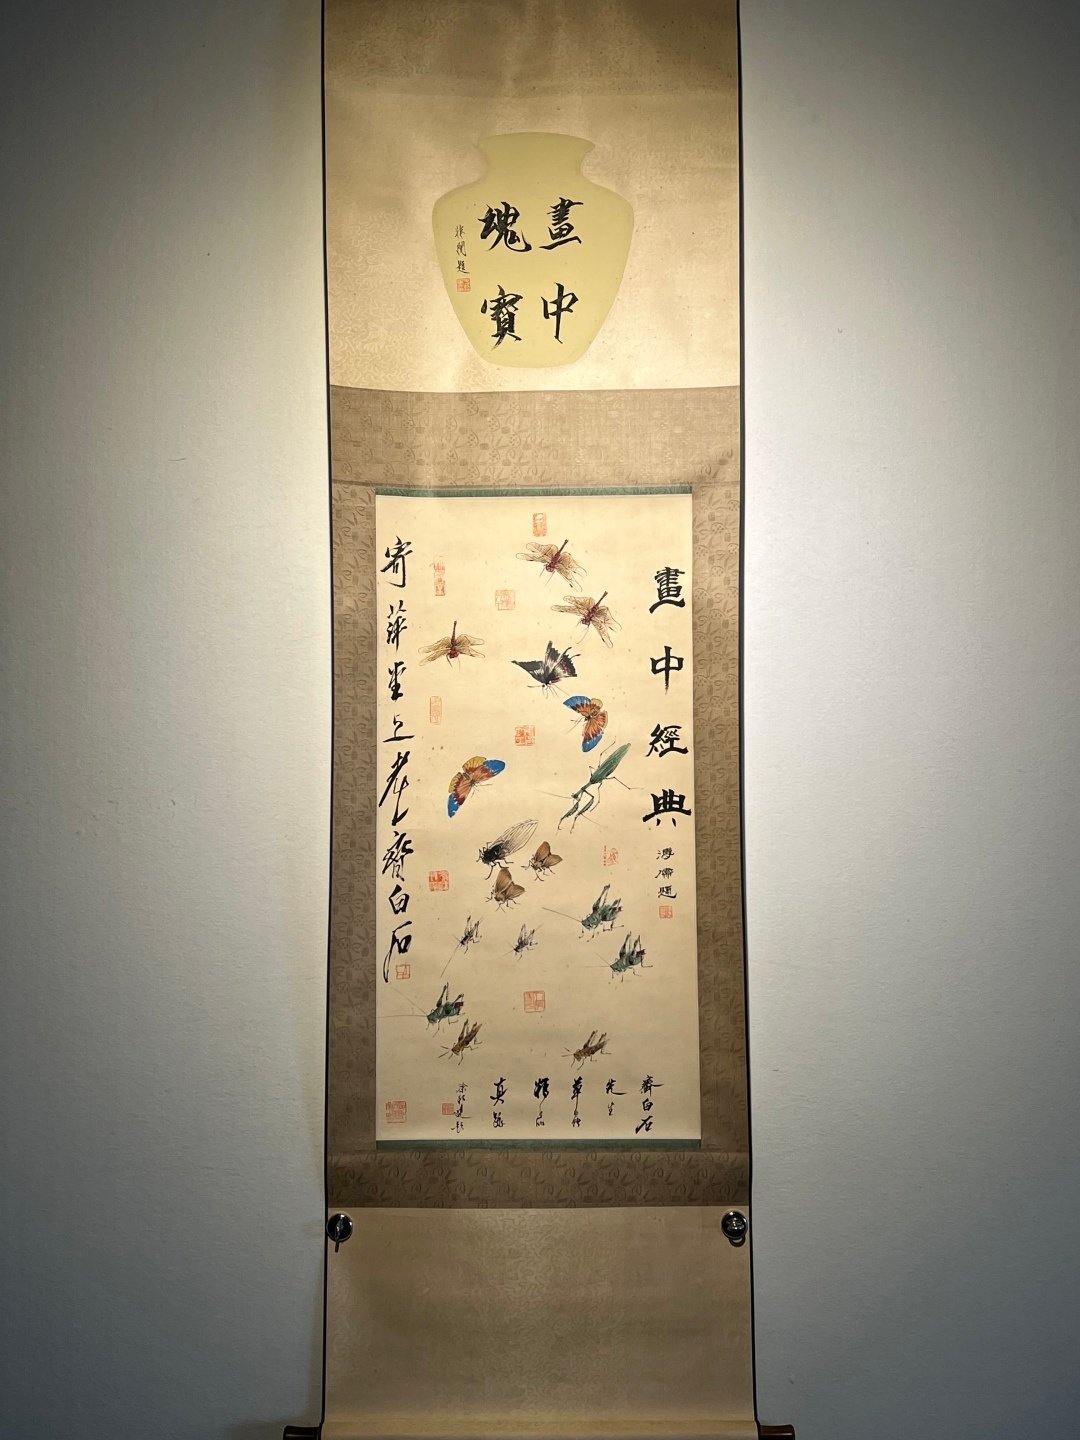 畫中
瑰寶
非闇題
畫中經典
溥儒題
寄萍堂上老人齊白石
齊白石
先生
草蟲
精品
真跡
徐邦達題